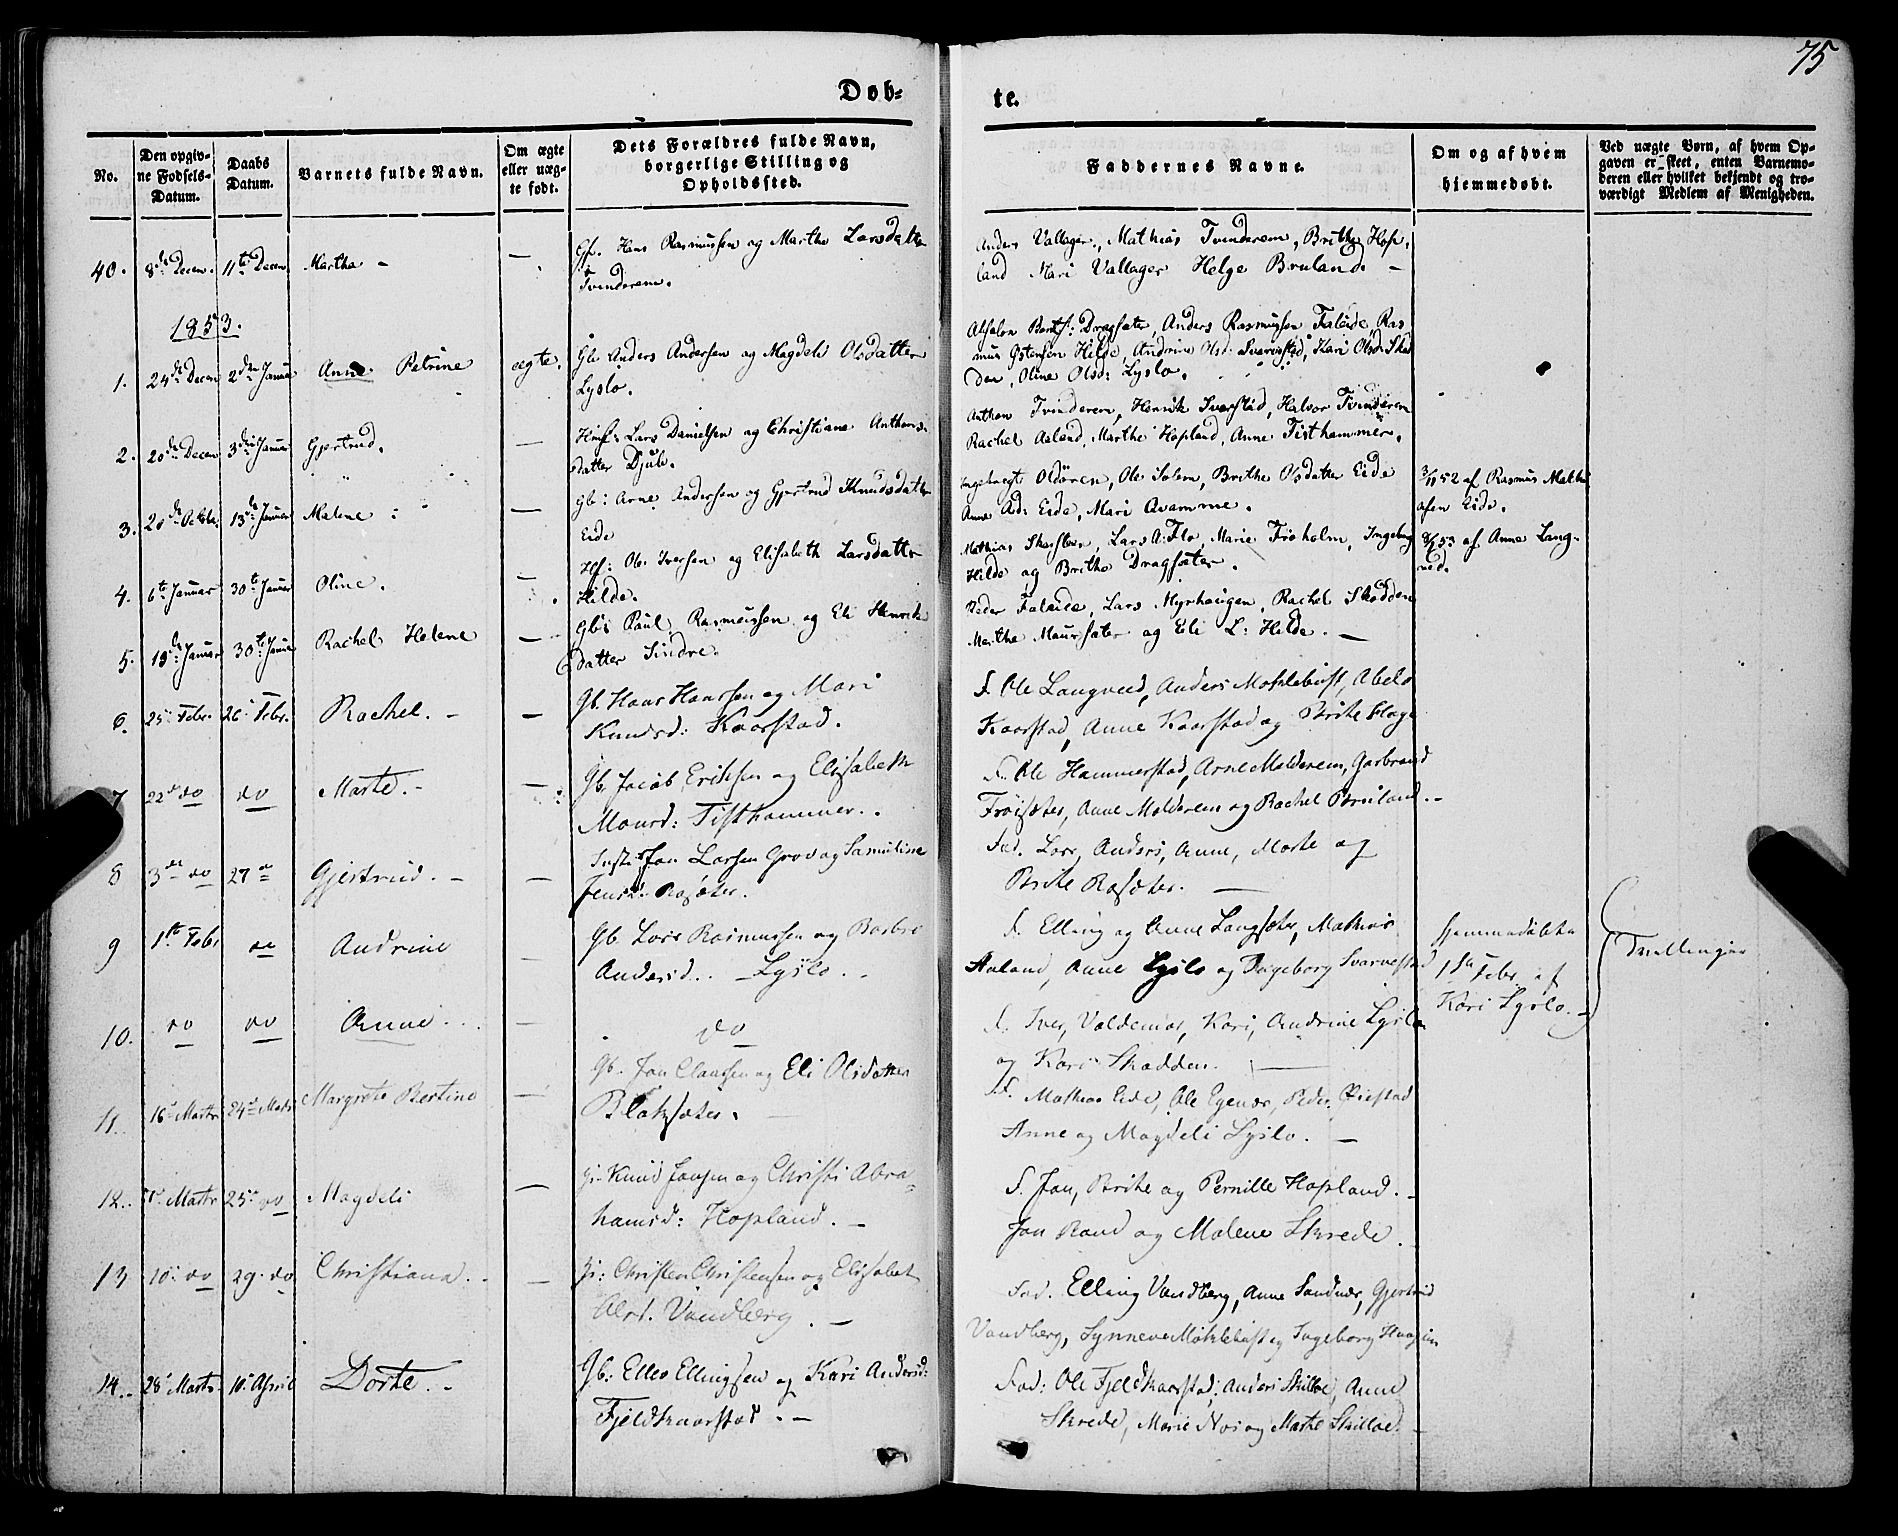 75
Døb-
te.
No.
Den opgiv-
ne Fødsels-
Datum.
Daabs
Datum.
Barnets fulde Navn.
Om ægte
eller uæg-
te født.
Dets Forældres fulde Navn,
borgerlige Stilling og
Opholdssted.
Faddernes Navne.
Om og af hvem
hjemmedøbt.
Ved uægte Børn, af hvem Op-
gaven er skeet, enten Barnemo-
deren eller hvilket bekjendt og tro-
værdigt Medlem af Menigheden.
40. 8de Decem. 11te Decem Martha - —
Gf. Hans Rasmussen og Marthe Larsdatter
Tvinderem.
Anders Vallager, Mathias Tvinderem, Brithe Hop-
land Mari Vallager Helge Bruland. -
1853.
1. 24de Decem 2den Januar Anne Petrine ægte.
Gbr Anders Andersen og Magdeli Olsdatter
Lyslo.
Absalon Bents: Dragsæter, Anders Rasmussen Faleide, Ras
mus Østensen Hilde, Andrine Olsd: Svarvestad, Kari Olsd: Skad
den, Oline Olsd: Lyslo.
2. 20de Decem 3die Januar Gjertrud. —
Huusf: Lars Danielsen og Christiane Anthons-
datter Djuv.
Anthon Tvinderem, Henrik Svarstad, Halvor Tvinderem
Rachel Aaland, Marthe Hopland, Anne Tisthammer.
3. 20de Octbr 13de Januar Malene —
Gb: Arne Andersen og Gjertrud Knudsdatter
Eide
Oldøren, Ole Solem, Brithe Olsdatter Eide
Anne Ad: Eide, Mari Qvamme.
3/11 52 af Rasmus Mathi
asen Eide.
4. 6te Januar 30te Januar Oline. —
Hf: Ole Iversen og Elisabeth Larsdatter
Hilde.
Mathias Skarstein, Lars A: Flo, Marie Frøholm, Ingeborg
Hilde og Brithe Dragsæter.
8/1 53 af Anne Lang-
ved.
5. 19de Januar 30te Januar Rachel Helene —
Gbr: Paul Rasmussen og Eli Henriks
datter Sindre.
Peder Faleide, Lars Myrhaugen, Rachel Skadden
Marthe Maursæter og Eli L: Hilde. —
6. 25de Febr. 26. Febr. Rachel. - —
Gb. Hans Hanssen og Mari
Knudsd: Kaarstad.
F. Ole Langved, Anders Moklebust, Abelo
Kaarstad, Anne Kaarstad og Brite Hage
7 22de do do Marte. - —
Gb. Jacob Eriksen og Elisabeth
Monsd: Tisthammer.
F. Ole Hammerstad, Arne Molderem, Garbrand
Frøisæter, Anne Molderem og Rachel Bruland. -
8 3de do 27de Gjertrud. - —
Inst: Jon Larsen Grov og Samuline
Jensd: Rosæter.
Fad. Lars, Anders, Anne, Marte og
Brite Rosæter. —
9 1ste Febr do Andrine —
Gb. Lars Rasmussen og Barbro
Andersd. - Lyslo. -
F. Elling og Anne Langsæter, Mathias
Aaland, Anne Lyslo og Ingeborg Svarvestad
Hjemmedøbte
1ste Febr af
Kari Lyslo. -
Tvillinger
10. do do Anne —
do
F. Iver, Valdemar, Kari, Andrine Lyslo
og Kari Skadden. —
11. 16de Marts 24de Marts Margrete Bertine —
Gb. Jon Claussen og Eli Olsdatter
Blaksæter.
F. Mathias Eide, Ole Egenæs, Peder Øvrestad
Anne og Magdeli Lyslo. —
12. 1ste Marts 25de do Magdeli —
Gr. Knud Jonsen og Christi Abra-
hamsd: Hopland. -
F. Jon, Brite og Pernille Hopland. -
Jon Rand og Malene Skrede.
13 10de do 29. do Christiana. - —
Gr: Christen Christensen og Elisabet
Olsd. Vandberg. -
Fad. Elling Vandberg, Anne Sandnær, Gjertrud
Vandberg, Synneve Moklebust og Ingeborg Haugen
14. 28de Marts 10de April Dorte. -
Gb: Elles Ellingsen og Kari Andersd:
Fjeldkaarstad. -
Fad: Ole Fjeldkaarstad, Anders Skillve, Anne
Skrede, Marie Nos og Marte Skillve.